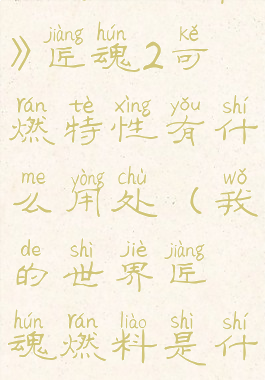 jiàng hún kě
》匠魂2可
rán tè xìng yǒu shí
燃特性有什
me yòng chù wǒ
么用处（我
de shì jiè jiàng
的世界匠
hún rán liào shì shí
魂燃料是什